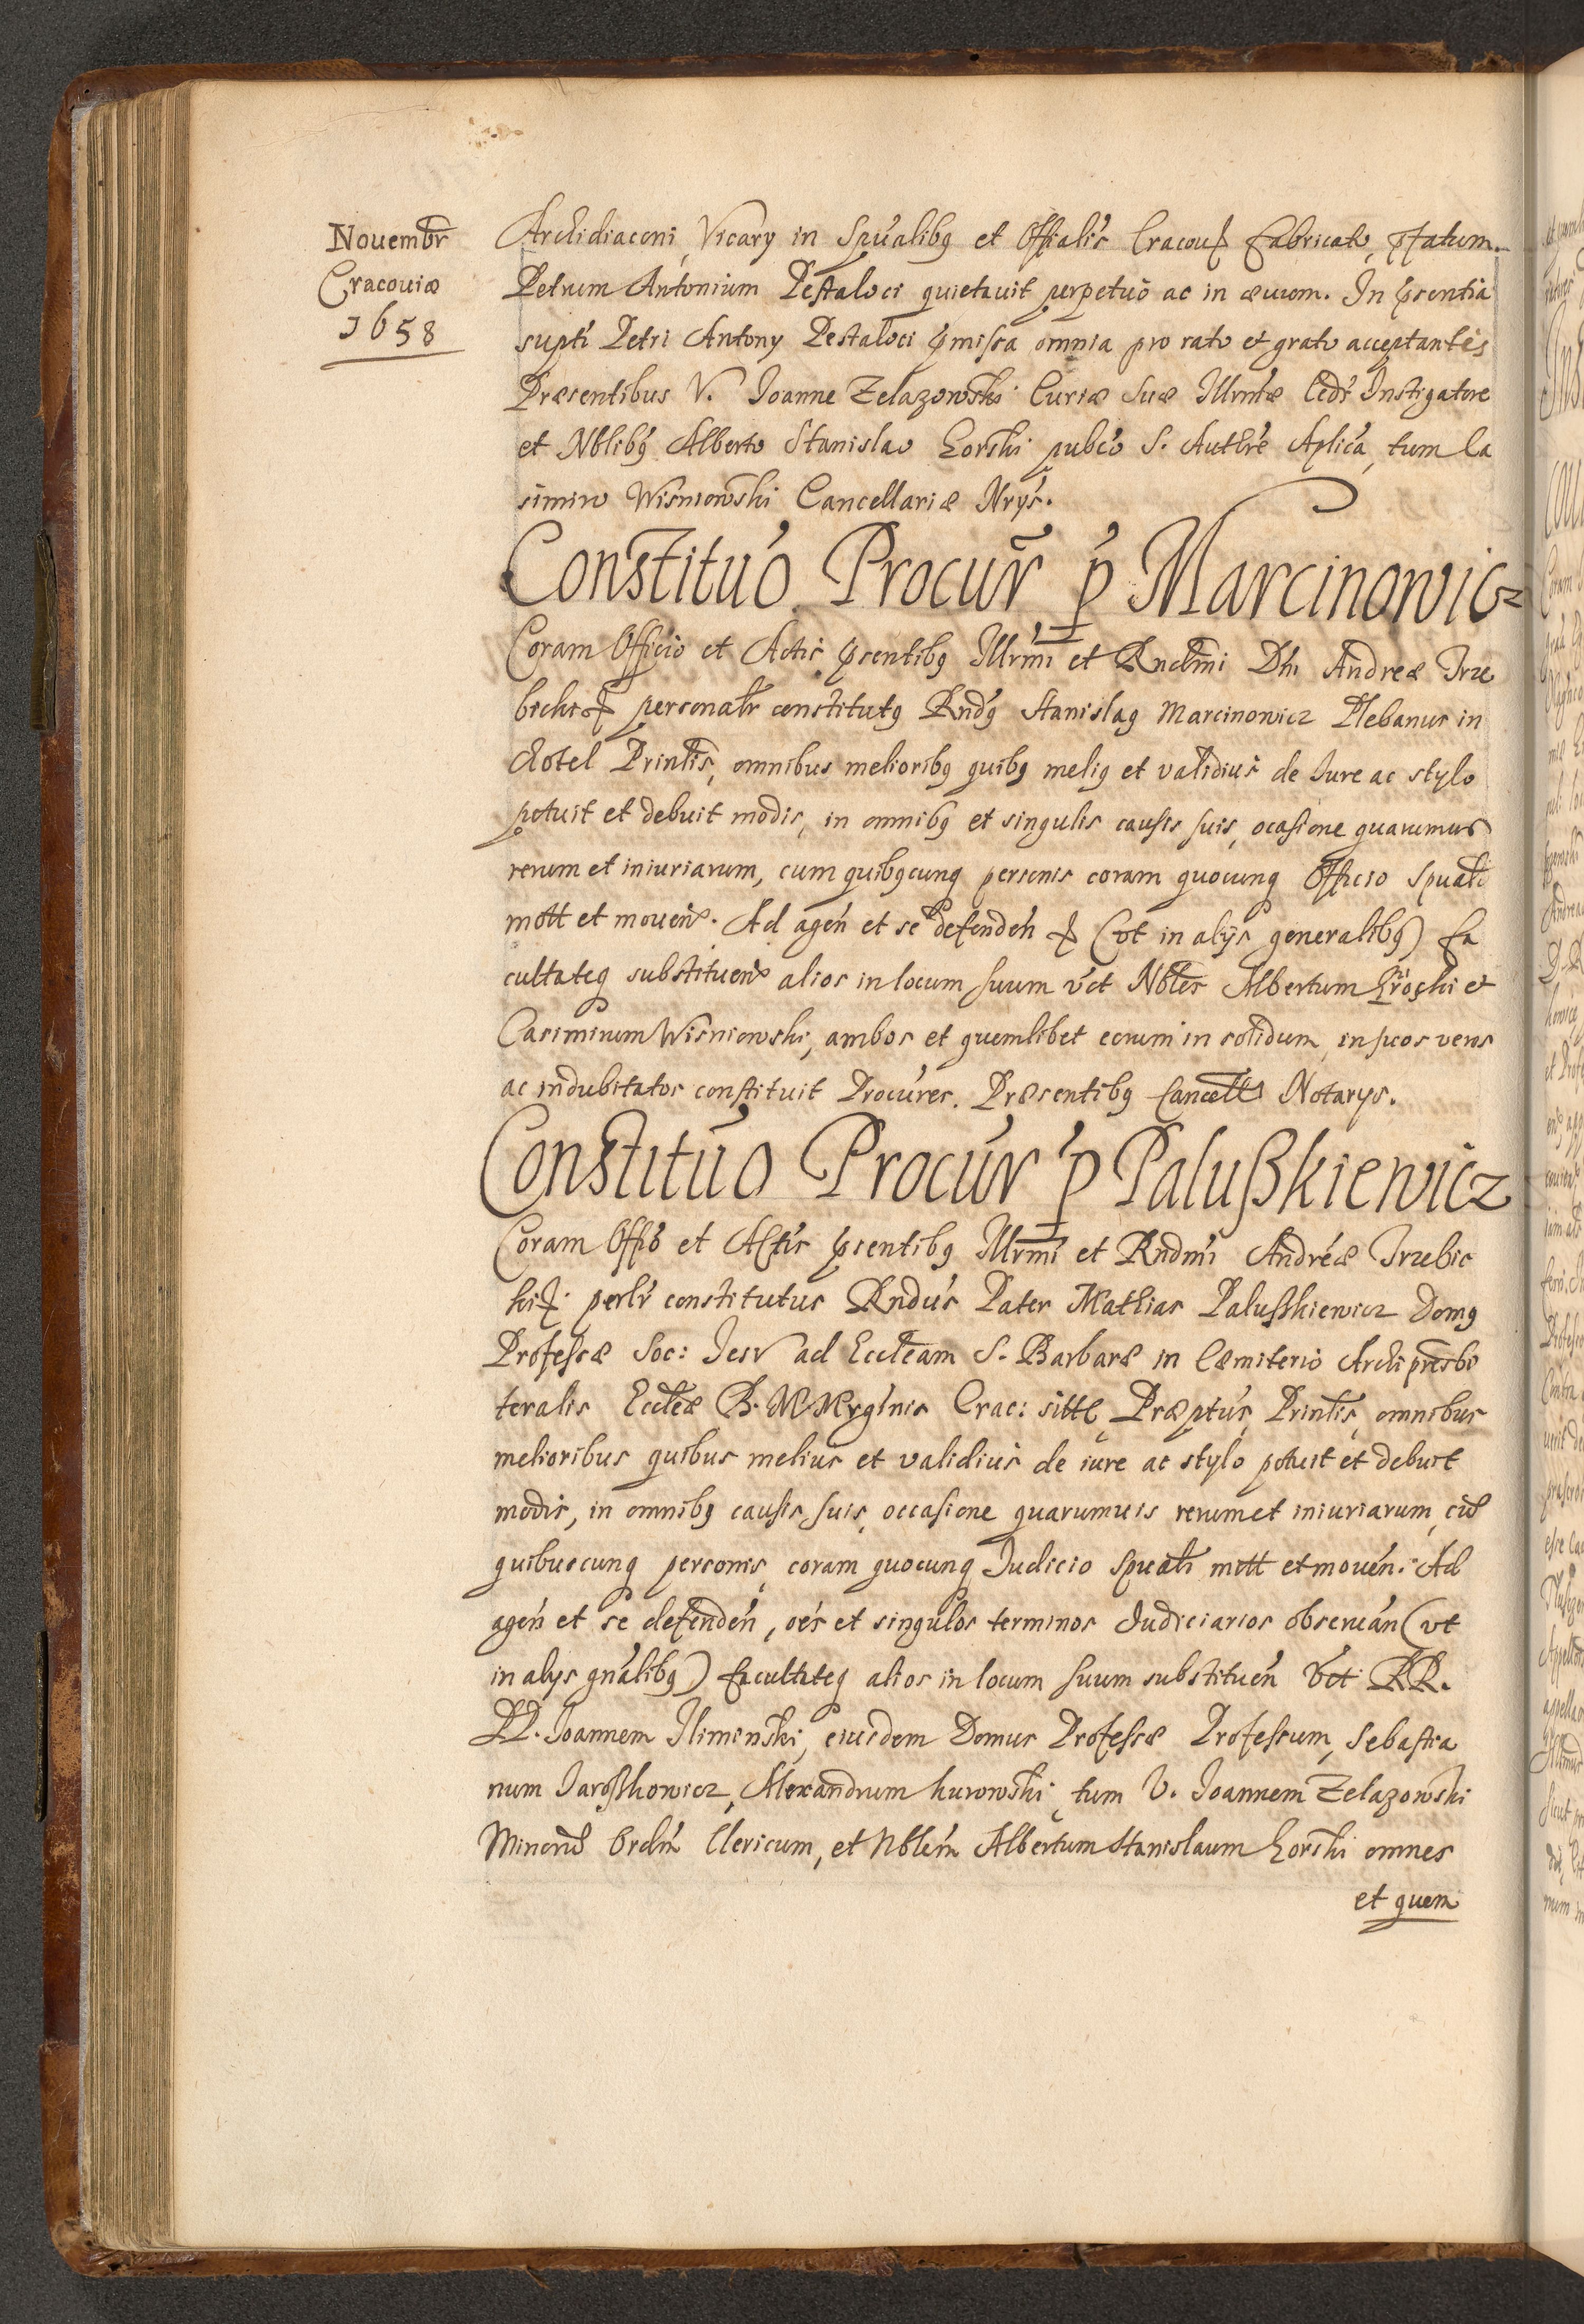 Nouembr̃
Cracouiæ
1658
Archidiaconi, Vicarÿ in Spu'alibq et Offialis Cracou fabricato, ꝑfatum
Petrum Antonium Pestaloci quietauit perpetuò ac in æuum. In ꝑsentia
supti Petri Antonÿ Pestaloci ꝑmissa omnia pro rato et grato acceptantis
Præsentibus V. Joanne Zelazowski Curiæ Suæ Illrmæ Cedi Instigatore
et Nblibq Alberto Stanislao Gorski pubco S. Authre Aplica, tum Ca
simiro Wisniowski Cancellariæ Nrÿs.
Constituo Procur p Marcinowicz
Coram Officio et Actis ꝑsentibq Illrmi et Rndmi Dni Andreæ Trze
bicki personalr constitutq Rndq Stanislaq Marcinowicz Plebanus in
Chotel Prinlis, omnibus melioribq quibq meliq et validius de Jure ac stylo
potuit et debuit modis, in omnibq et singulis causis suis, ocasione quarumuis
rerum et iniuriarum, cum quibqcunq personis coram quocunq Officio Spuali
mott et mouen. Ad agen et se defenden (vt in alijs generalibq) fa
cultateq substituen alios in locum suum vct Nbles Albertum et
Casimirum Wisniowski, ambos et quemlibet eorum in solidum, in suos veros
ac indubitatos constituit Procures. Præsentibq Cancell Notarÿs.
Constituo Procur p Palußkiewicz
Coram Offio et Actis ꝑsentibq Illrmi et Rndmi Andreæ Trzebic
ki perlr constitutus Rndus Pater Mathias Palußkiewicz Domq
Professæ Soc: Jesv ad Eccleam S. Barbaræ in Cæmiterio Archipresbi
teralis Eccleæ B. M Crac: Præptus, Prinlis, omnibus
melioribus quibus melius et validius de iure ac stylo potuit et debuit
modis, in omnibq causis suis, occasione quarumuis rerum et iniuriarum, cu
quibuscunq personis, coram quocunq Judicio Spuali mott et mouen. Ad
agen et se defenden, oes et singulos terminos Judiciarios obseruan (vt
in alÿs gnalibq) facultateq alios in locum suum substituen vct RR.
PP. Joannem Jliminski, eiusdem Domus Professæ Professum, Sebastia
num Jaroßkowicz, Alexandrum kurowski, tum V. Joannem Zelazowski
Minoru Ordin Clericum, et Nblem Albertum Stanislaum Gorski omnes
et quem